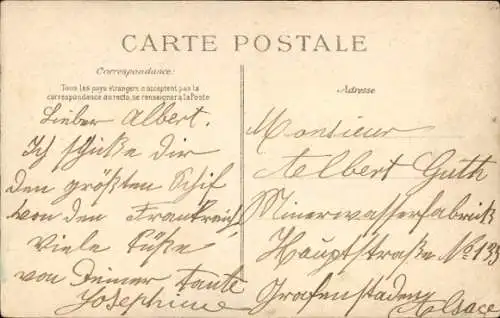 CARTE POSTALE
Correspondance:
Tous les pays étrangers n'acceptent pas la
correspondance au recto, se renseigner à la Poste
Lieber Albert.
Ich schicke Dir
den größten Schif
von den Frankreich,
Viele Küße
von Deiner Tante
Josephine
Adresse
Monsieur
Aelbert Guth
Minerwasserfabrick
Hauptstraße No 133
Grafenstaden
Alsace